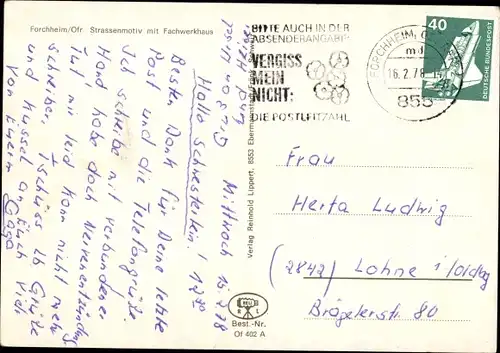 Forchheim/Ofr. Strassenmotiv mit Fachwerkhaus
BITTE AUCH IN DER
ABSENDERANGABE:
VERGISS
MEIN
NICHT:
DIE POSTLEITZAHL
FORCHHEIM,
16.2.78-14
855
40
DEUTSCHE BUNDESPOST
Mittwoch 15.2.78
Hallo Schwesterlein!
Besten Dank für Deine letzte
Post und die Telefongrüße.
Ich schreibe mit verbundener
Hand habe doch
Tut mir leid kann nicht mehr
schreiben. Tschüss lb Grüße
und Kussel an Euch
Von Eurem Gaga
Verlag Reinhold Lippert, 8553 Ebermannstadt
BEST.-Nr.
Of 402 A
Frau
Herta Ludwig
(2842) Lohne i/Oldbg
Brägelerstr. 80